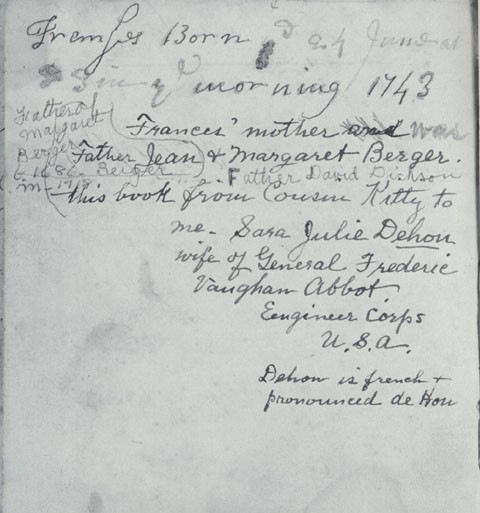 Frances Born yd 24 June at
5 in yd morning 1743
Father of
Margaret
Berger
Frances' mother and was
Father Jean & Margaret Berger.
b. 1686. Berger
Father David Dickson
m-
this book from Cousin Kitty to
me - Sara Julie Dehon
wife of General Frederic
Vaughan Abbot
Engineer Corps
U.S.A.
Dehon is french &
pronounced de Hon